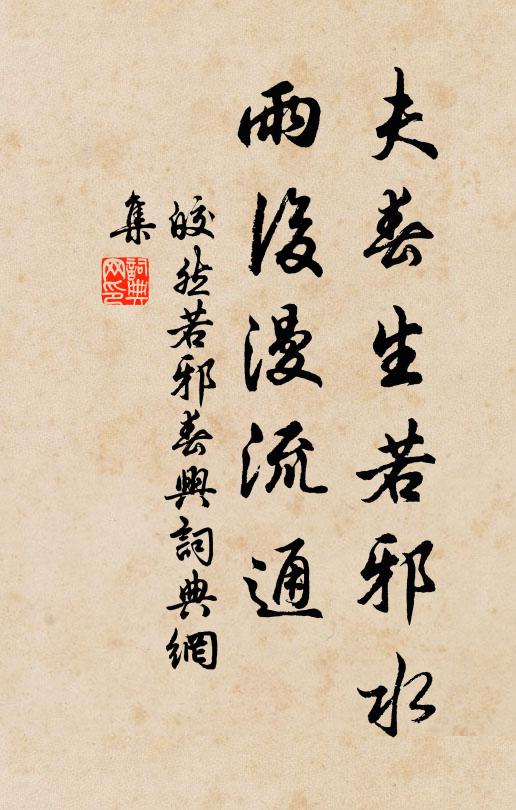 夫春生若邪水
雨後漫流通
皎然若邪春興詞典網
集
詞典
网印